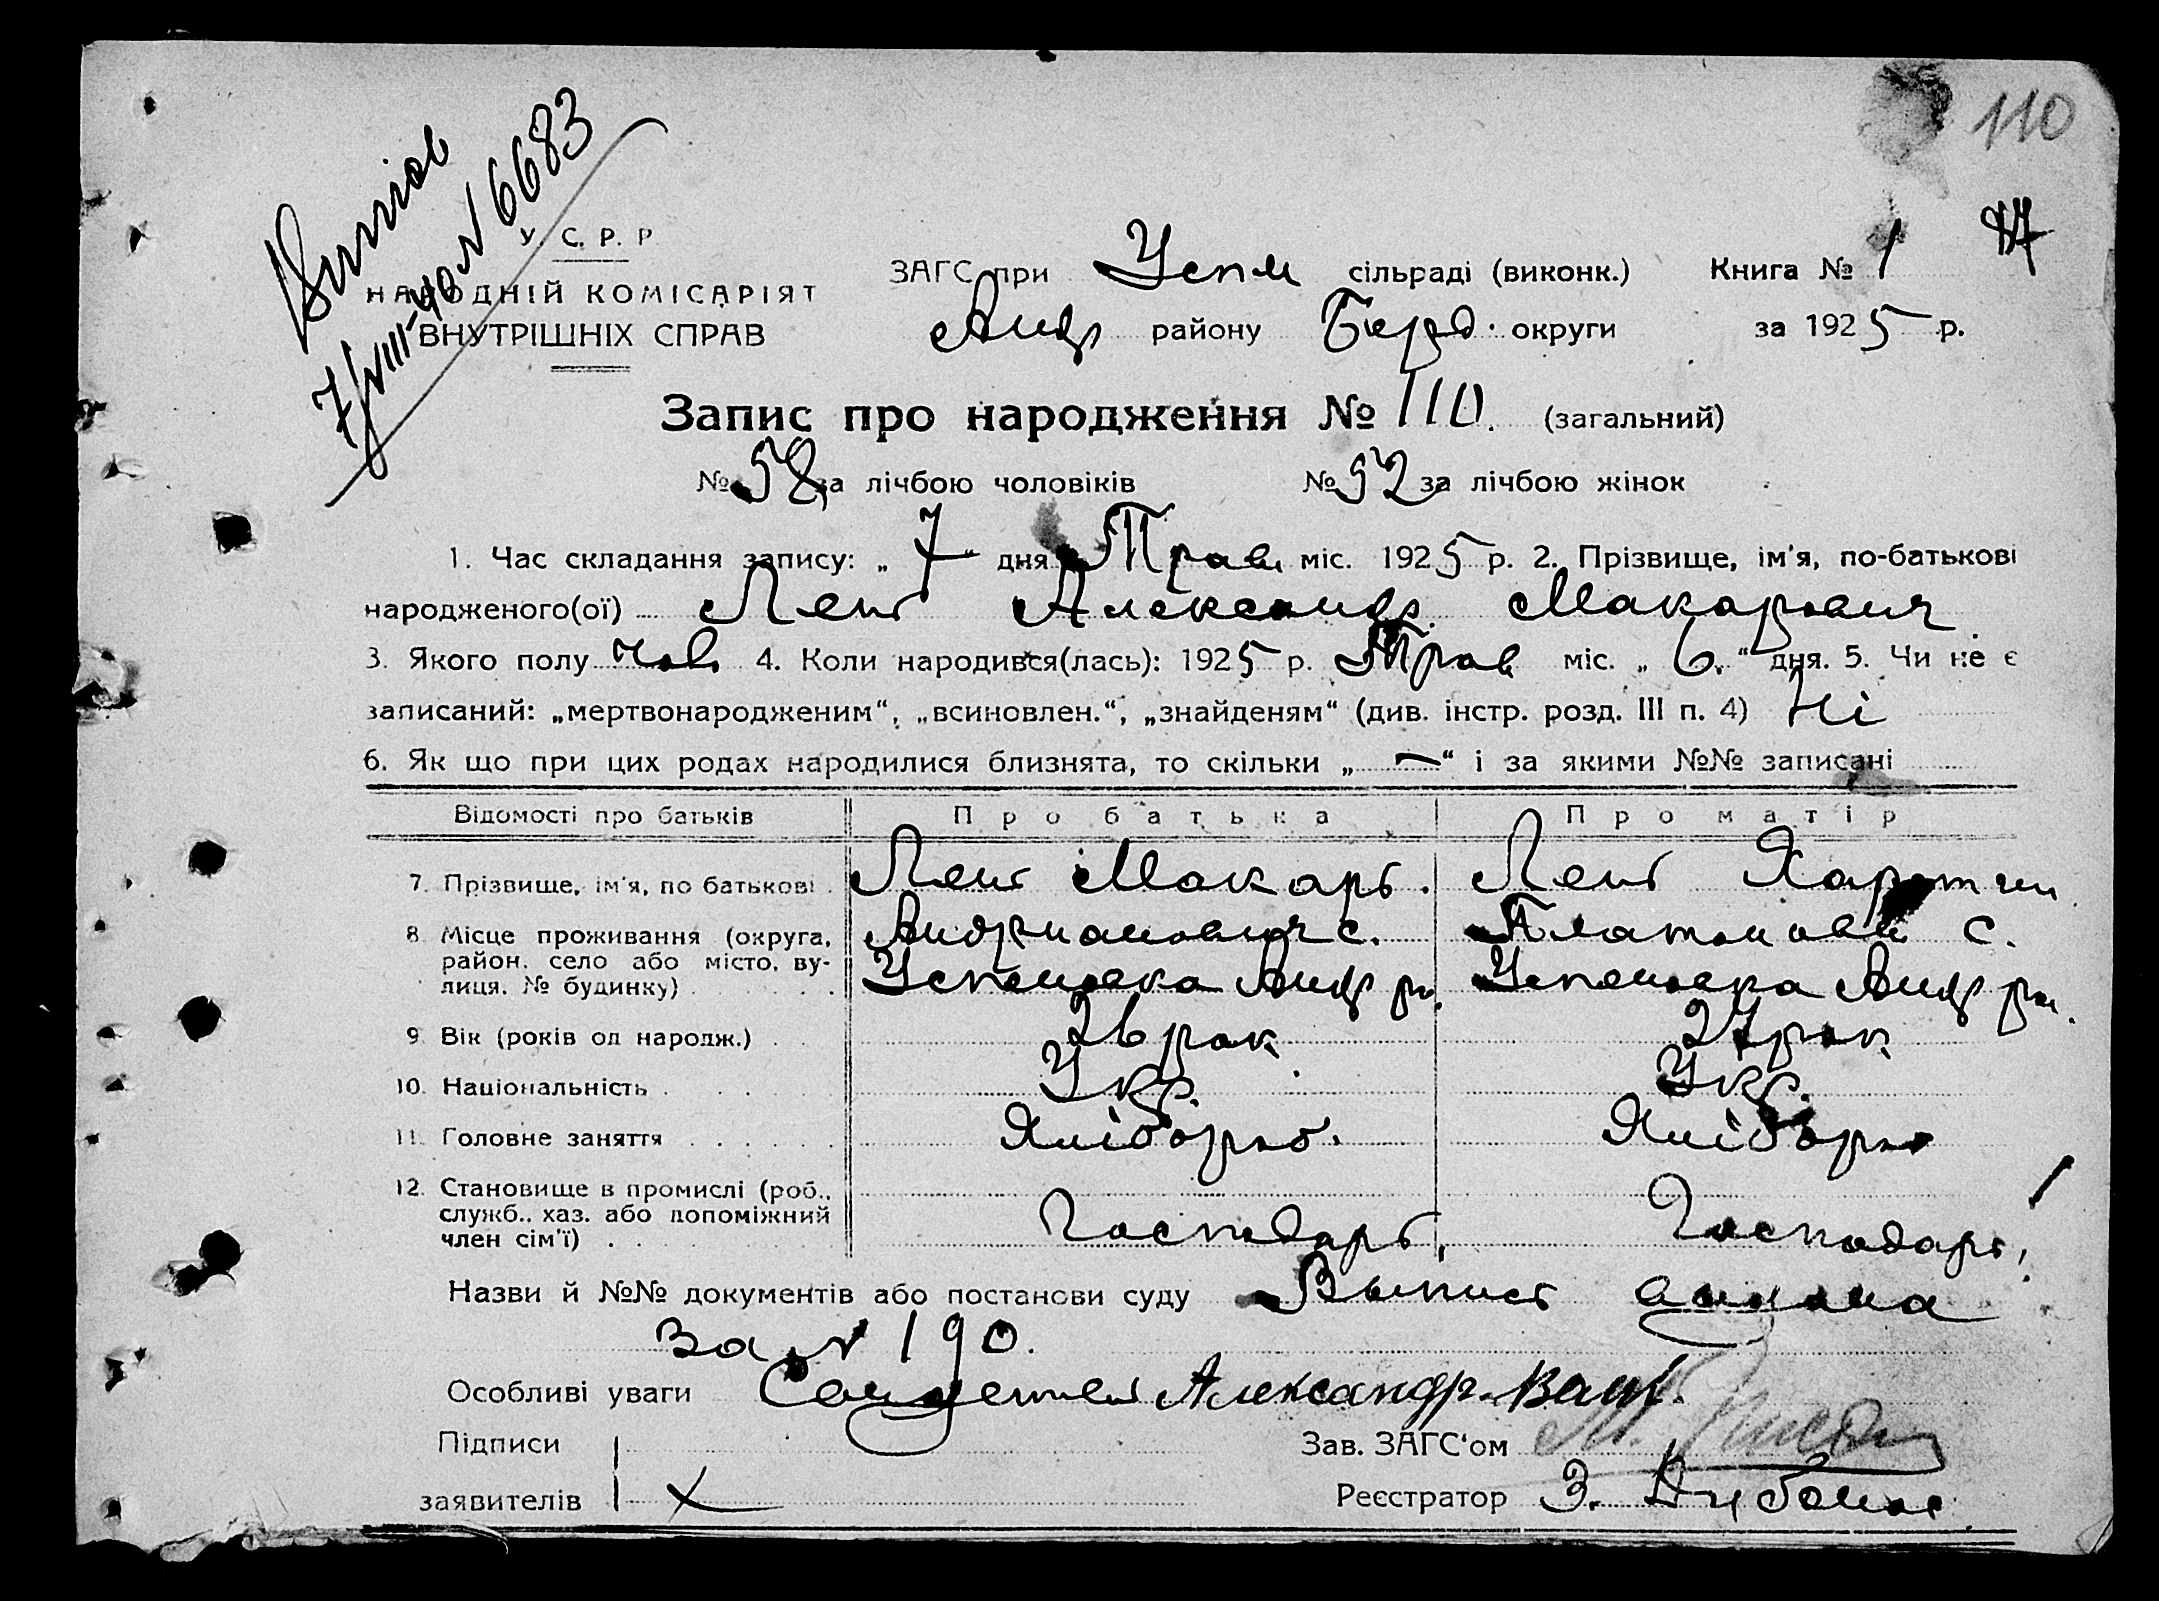 110
Выпись
7/VIII-40 N 6683
У. С. Р. Р.
НАРОДНІЙ КОМІСАРІЯТ
ВНУТРІШНІХ СПРАВ
ЗАГС при Успен сільраді (виконк.) Книга № 1
Андр району Берд. округи за 1925 р.
Запис про народження № 110. (загальний)
№ 58 за лічбою чоловіків № 52 за лічбою жінок
1. Час складання запису: „7" дня Трав міс. 1925 р. 2. Прізвище, ім'я, по-батькові
народженого(ої) Александр Макарович
3. Якого полу чов 4. Коли народився(лась): 1925 р. Трав міс. „6." дня. 5. Чи не є
записаний: „мертвонародженим“, „всиновлен.“, „знайденям“ (див. інстр. розд. III п. 4) Ні
6. Як що при цих родах народилися близнята, то скільки „ — “ і за якими №№ записані
Відомості про батьків Про батька Про матір
7. Прізвище, ім'я, по батькові Макарь Харетин
8. Місце проживання (округа, Андрианович с. Платонов с.
район, село або місто, ву-
лиця, № будинку) Успеновка Андр рн. Успеновка Андр рн.
9. Вік (років од народж.) 26 рок 27 рок
10. Національність Укр. Укр.
11. Головне заняття Хлібороб. Хлібороб
12. Становище в промислі (роб.,
служб., хаз. або допоміжний Господарь, Господарь,
член сім'ї)
Назви й №№ документів або постанови суду Выпись
за N 190.
Особливі уваги Александр
Підписи Зав. ЗАГС‘ом
заявителів Х Реєстратор З.